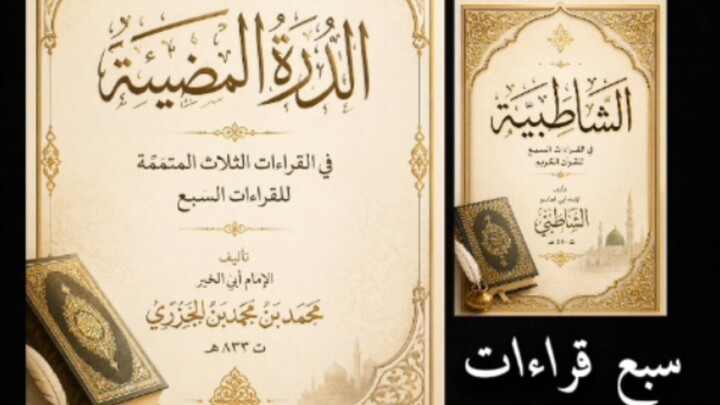 الدُّرَةُ المُضيئَةُ
في القراءات الثلاث المتمَمَة
للقراءات السَبع
تأليف
الإمام أبي الخير
مُحمَّد بن مُحمَّد بن الجَزَري
ت ٨٣٣ هـ
الشَّاطِبيَّة
في القراءات السبع
للقرآن الكريم
تأليف
الشَّاطِبيّ
ت ٥٩٠ هـ
سبع قراءات